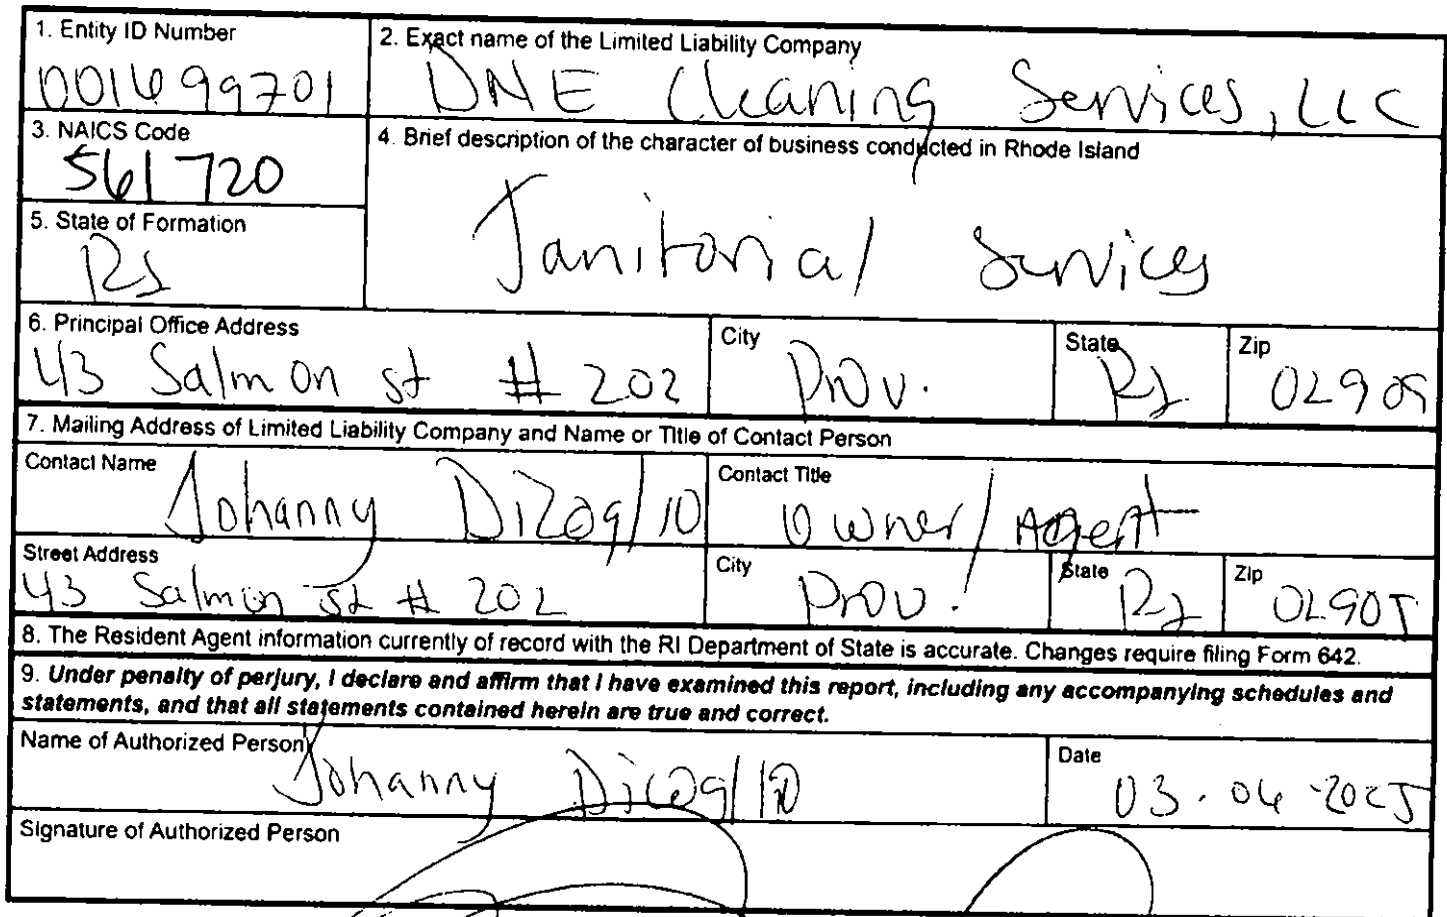 1. Entity ID Number
001699701
2. Exact name of the Limited Liability Company
DNE Cleaning Services, LLC
3. NAICS Code
561720
4. Brief description of the character of business conducted in Rhode Island
Janitorial Services
5. State of Formation
RI
6. Principal Office Address
43 Salmon st # 202
City
Prov.
State
RI
Zip
02909
7. Mailing Address of Limited Liability Company and Name or Title of Contact Person
Contact Name
Johanny DiZoglio
Contact Title
Owner/Agent
Street Address
43 Salmon st # 202
City
Prov.
State
RI
Zip
02905
8. The Resident Agent information currently of record with the RI Department of State is accurate. Changes require filing Form 642.
9. Under penalty of perjury, I declare and affirm that I have examined this report, including any accompanying schedules and
statements, and that all statements contained herein are true and correct.
Name of Authorized Person
Johanny
Date
Signature of Authorized Person